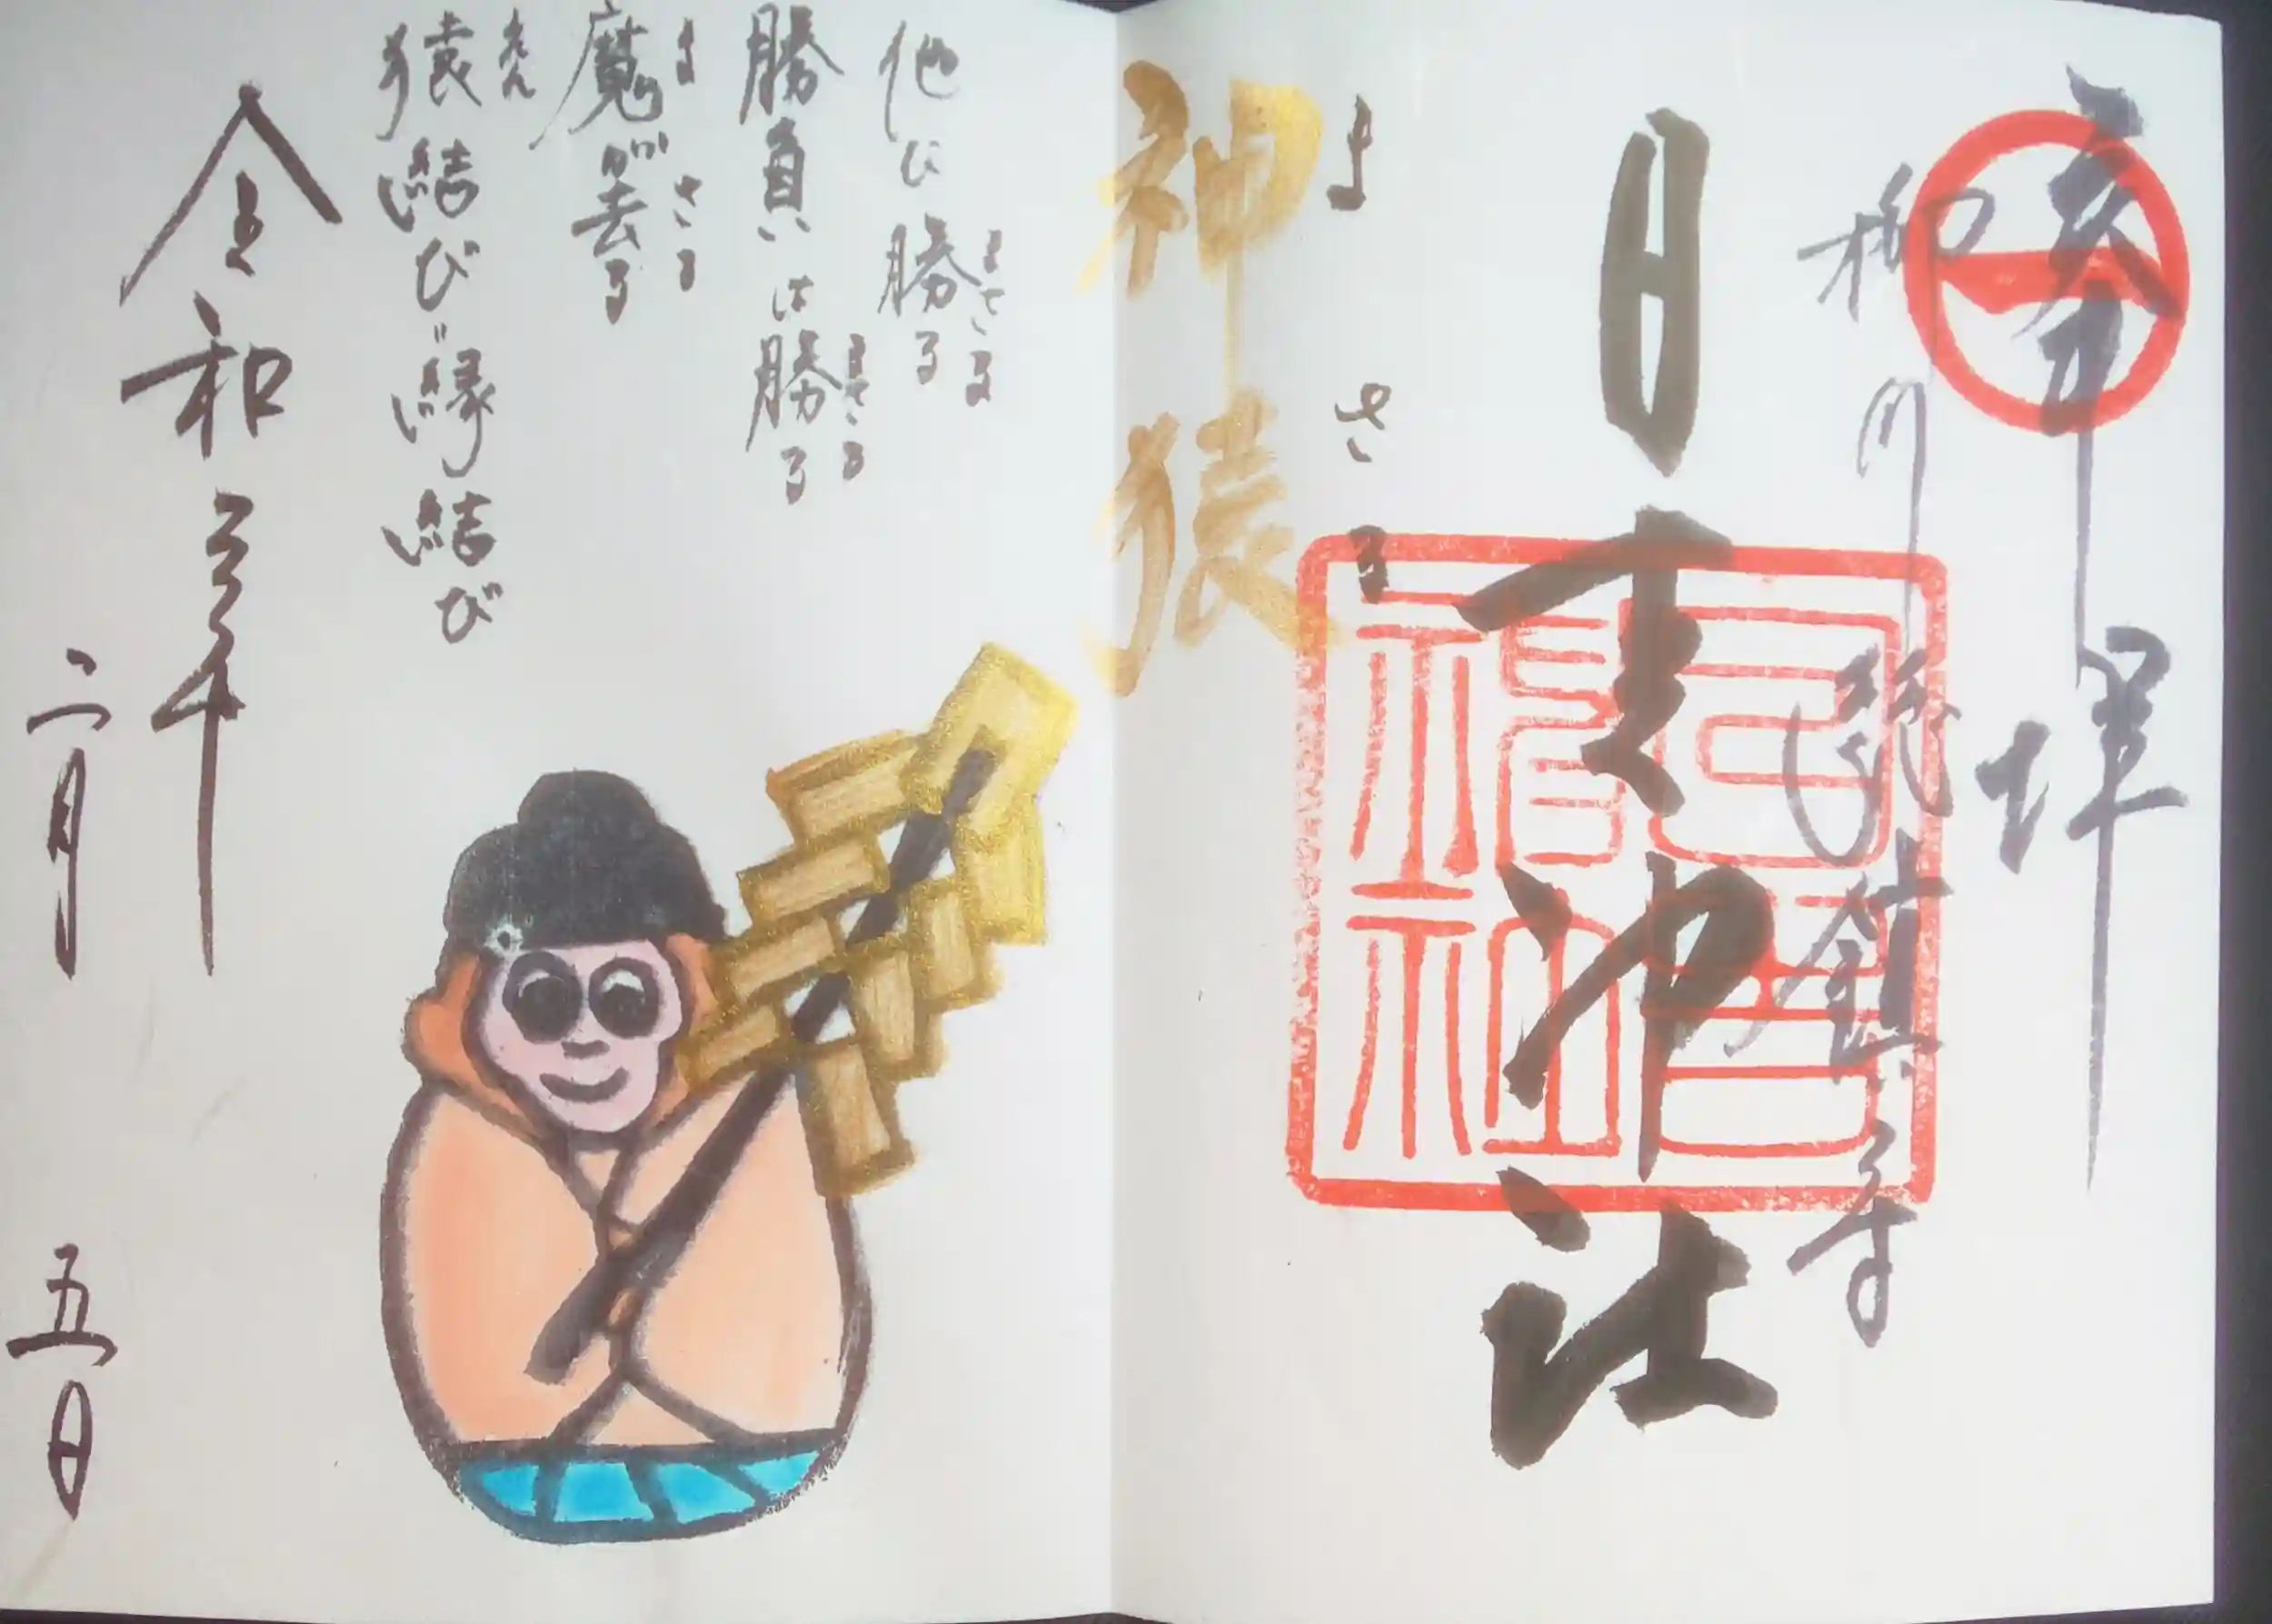 奉拝
柳川総鎮守
日吉神社
まさる
神猿
他に勝る
まさる
勝負に勝る
まさる
魔が去る
ま さる
猿結び＝縁結び
えん
令和三年
二月
五日
日吉神社